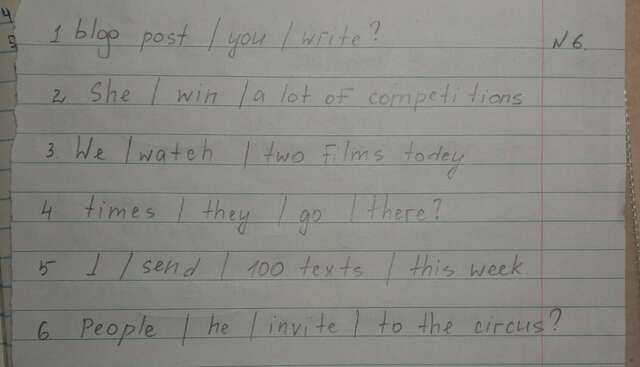 1 blgo post / you / write? N 6.
2 She / win / a lot of competitions
3. We / watch / two films today
4 times / they / go / there?
5 I / send / 100 texts / this week
6. People / he / invite / to the circus?